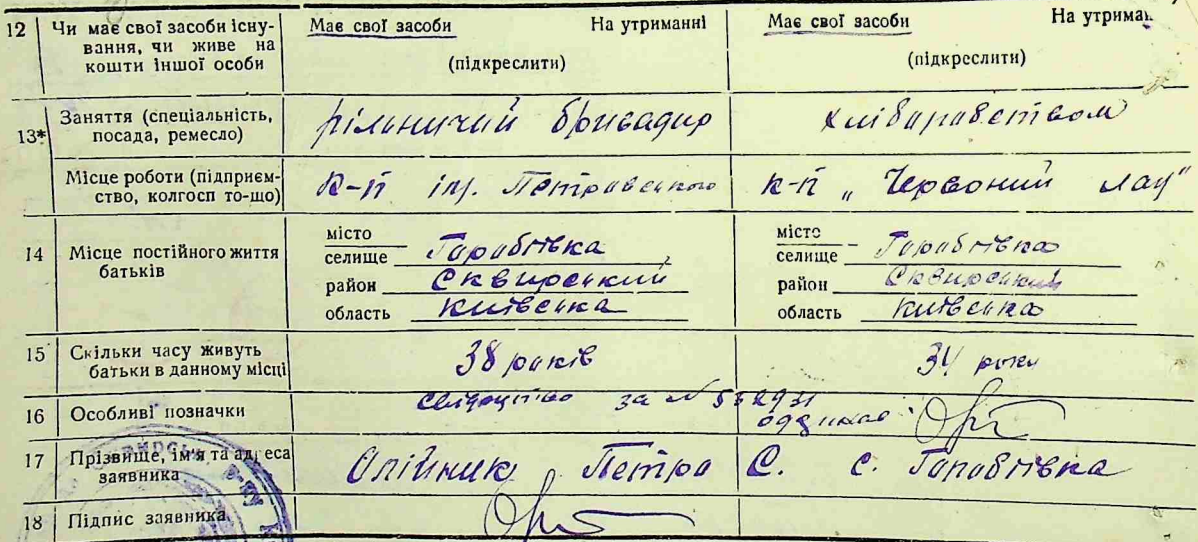 12 Чи має свої засоби існування, чи живе на кошти іншої особи
Має свої засоби На утриманні
(підкреслити)
Має свої засоби На утриман
(підкреслити)
13* Заняття (спеціальність, посада, ремесло)
рільничий бригадир
хліборобством
Місце роботи (підприємство, колгосп то-що)
к-п ім. Петровського
к-п „Червоний лан"
14 Місце постійного життя батьків
місто
селище Горобіївка
район Сквирський
область Київська
місто
селище Горобіївка
район Сквирський
область Київська
15 Скільки часу живуть батьки в данному місці
38 років
34 роки
16 Особливі позначки
свідоцтво за №
17 Прізвище, ім'я та адреса заявника
Олійник Петро С. с. Горобіївка
18 Підпис заявника